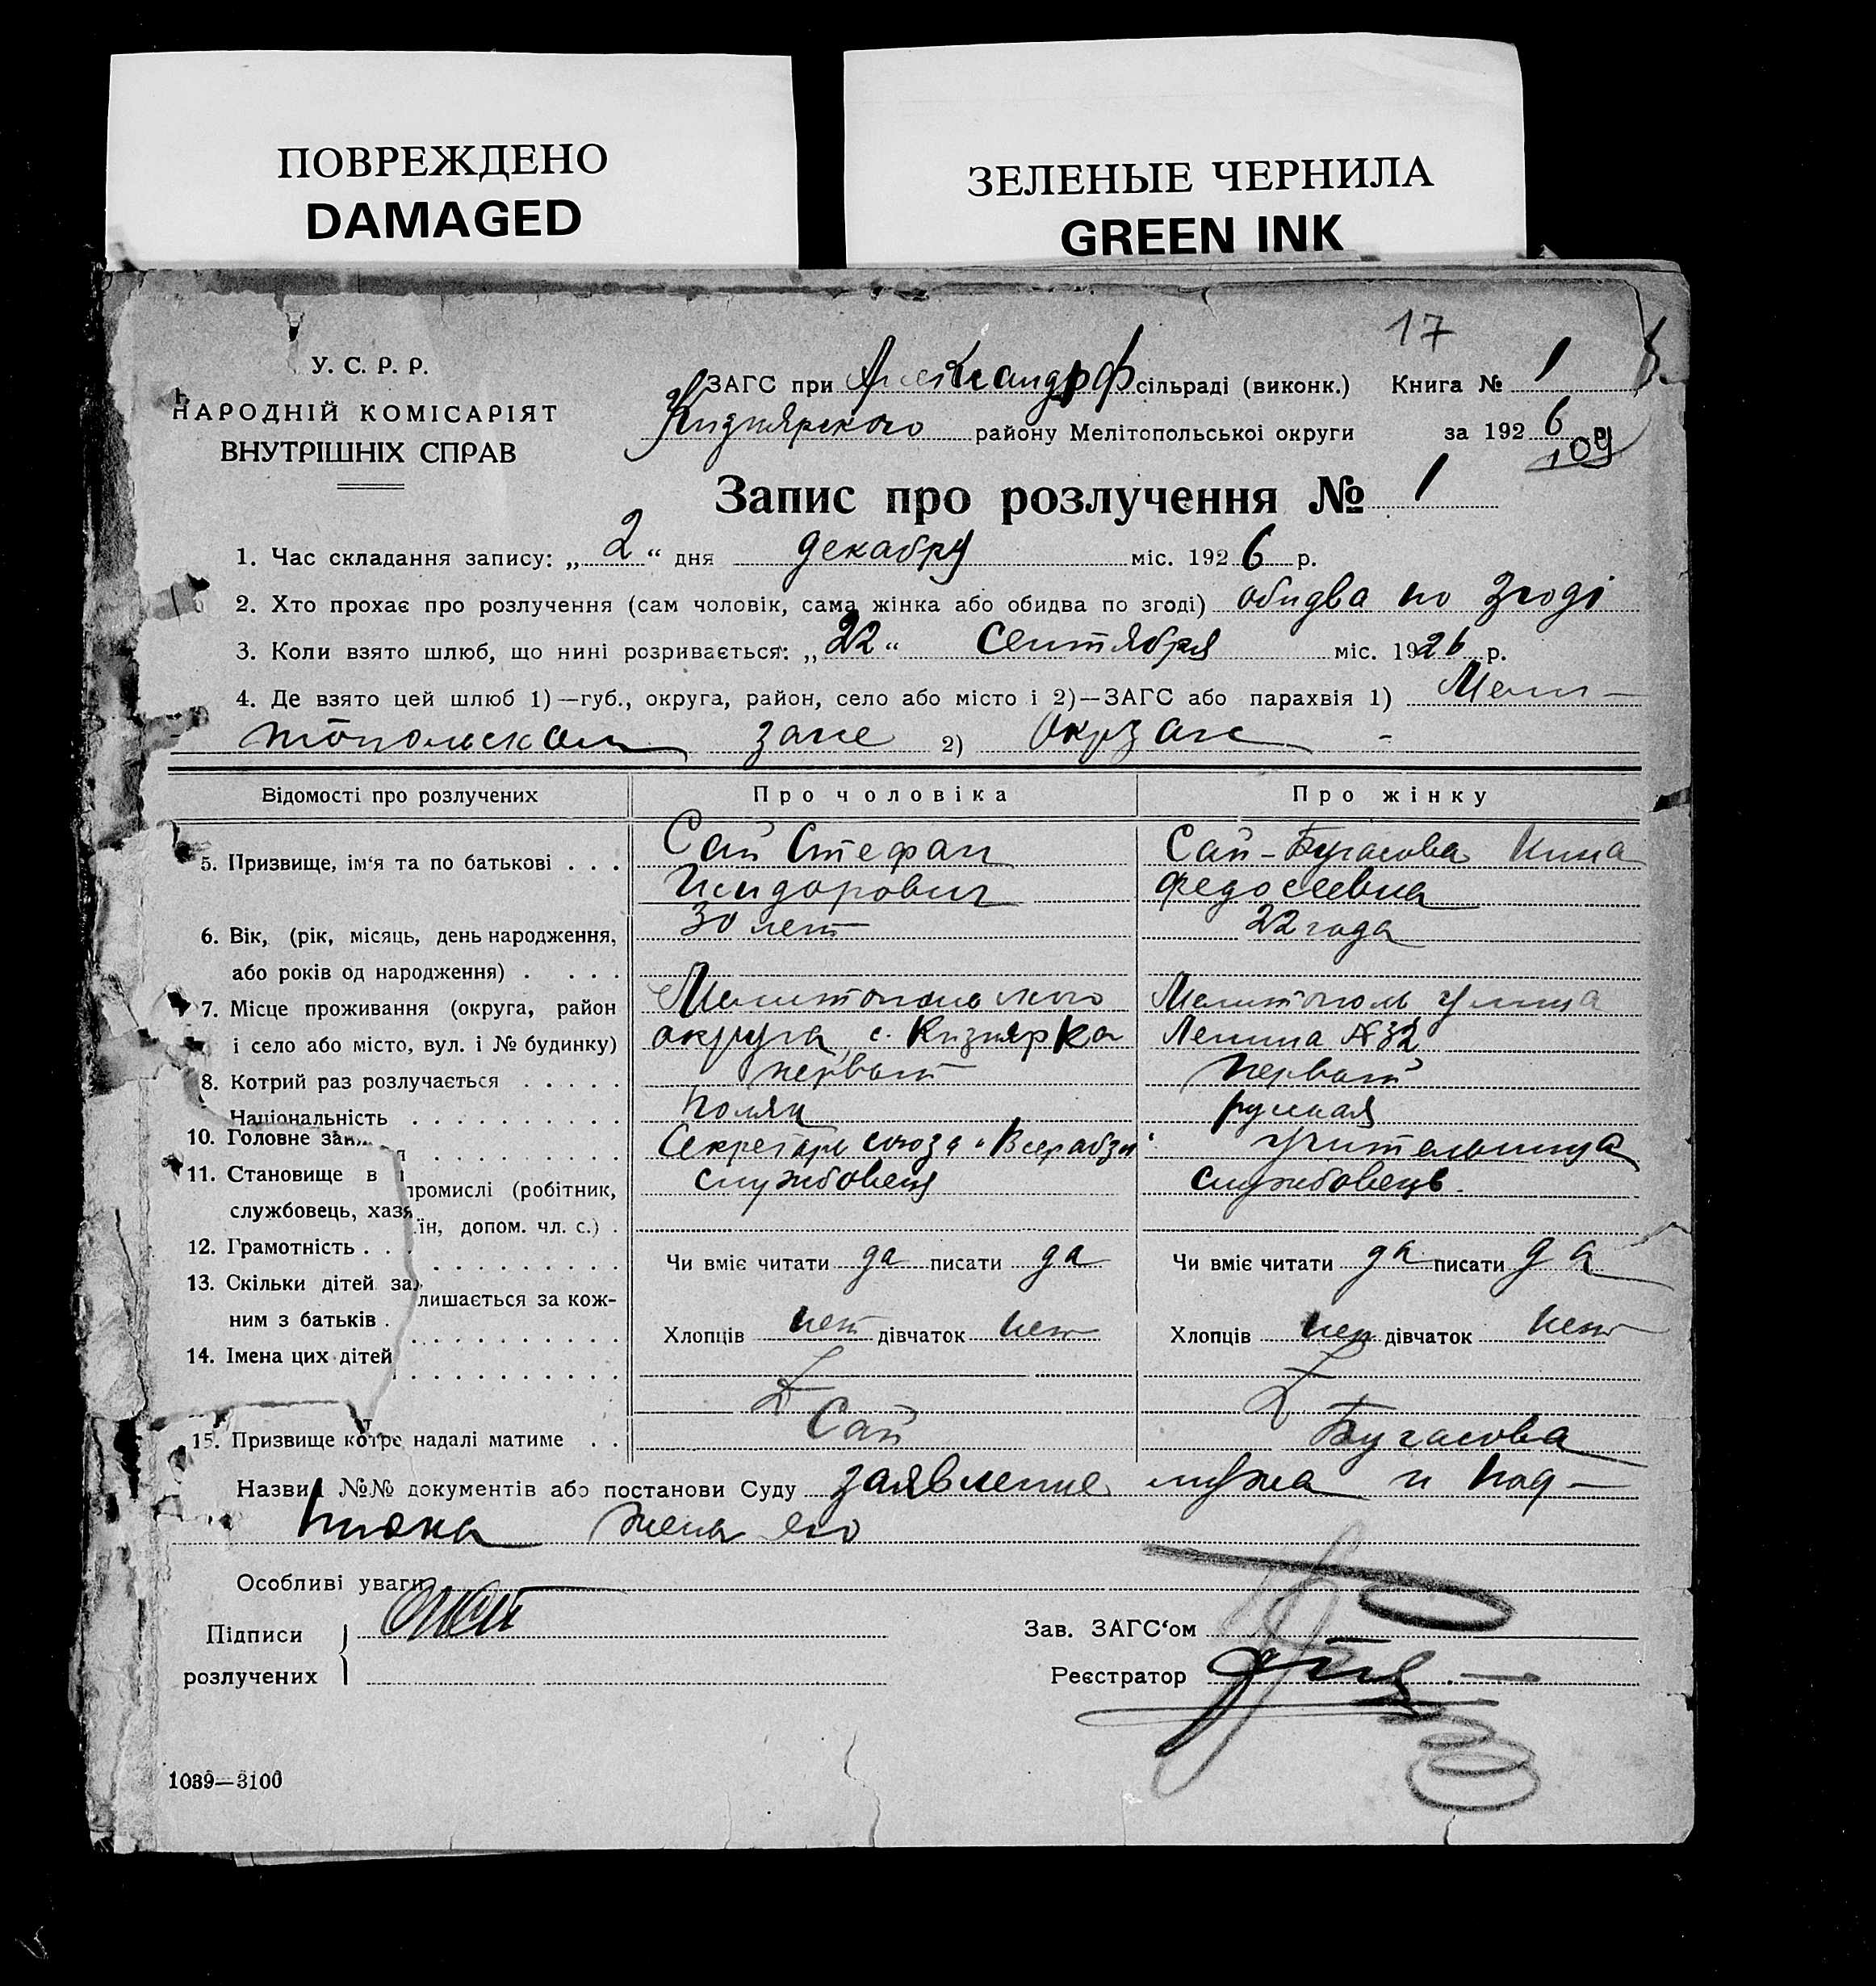 ПОВРЕЖДЕНО
DAMAGED
ЗЕЛЕНЫЕ ЧЕРНИЛА
GREEN INK
17
У. С. Р. Р.
НАРОДНІЙ КОМІСАРІЯТ
ВНУТРІШНІХ СПРАВ
ЗАГС при Александр сільраді (виконк.) Книга № 1
району Мелітопольської округи за 1926 р
109
Запис про розлучення № 1
1. Час складання запису: „2“ дня декабря міс. 1926 р.
2. Хто прохає про розлучення (сам чоловік, сама жінка або обидва по згоді) обидва по згоді
3. Коли взято шлюб, що нині розривається: „22“ Сентября міс. 1926 р.
4. Де взято цей шлюб 1)—губ., округа, район, село або місто і 2)—ЗАГС або парахвія 1) Мели-
топольском загсе 2) Окрзагс -
Відомості про розлучених Про чоловіка Про жінку
5. Призвище, ім'я та по батькові . . . Сай Стефан Сай-Бугасова Нина
Исидорович Федосеевна
6. Вік, (рік, місяць, день народження, 30 лет 22 года
або років од народження) . . . . .
7. Місце проживання (округа, район Мелитопольского Мелитополь улица
і село або місто, вул. і № будинку) округа, с. Кизиярка Ленина №32
8. Котрий раз розлучається . . . . . первый первый
Національність . . . . . . . . . . поляк русская
10. Головне зан Секретарь союза „Всерабзем“ учительница
11. Становище в промислі (робітник, службовець службовець.
службовець, хазяїн, допом. чл. с.) .
12. Грамотність . . . Чи вміє читати да писати да Чи вміє читати да писати да
13. Скільки дітей залишається за кож-
ним з батьків . Хлопців нет дівчаток нет Хлопців нет дівчаток нет
14. Імена цих дітей
15. Призвище котре надалі матиме . . Сай Бугасова
Назви №№ документів або постанови Суду заявление мужа и под-
писка жена его
Особливі уваги
Підписи Зав. ЗАГС'ом
розлучених Реєстратор
1039—3100